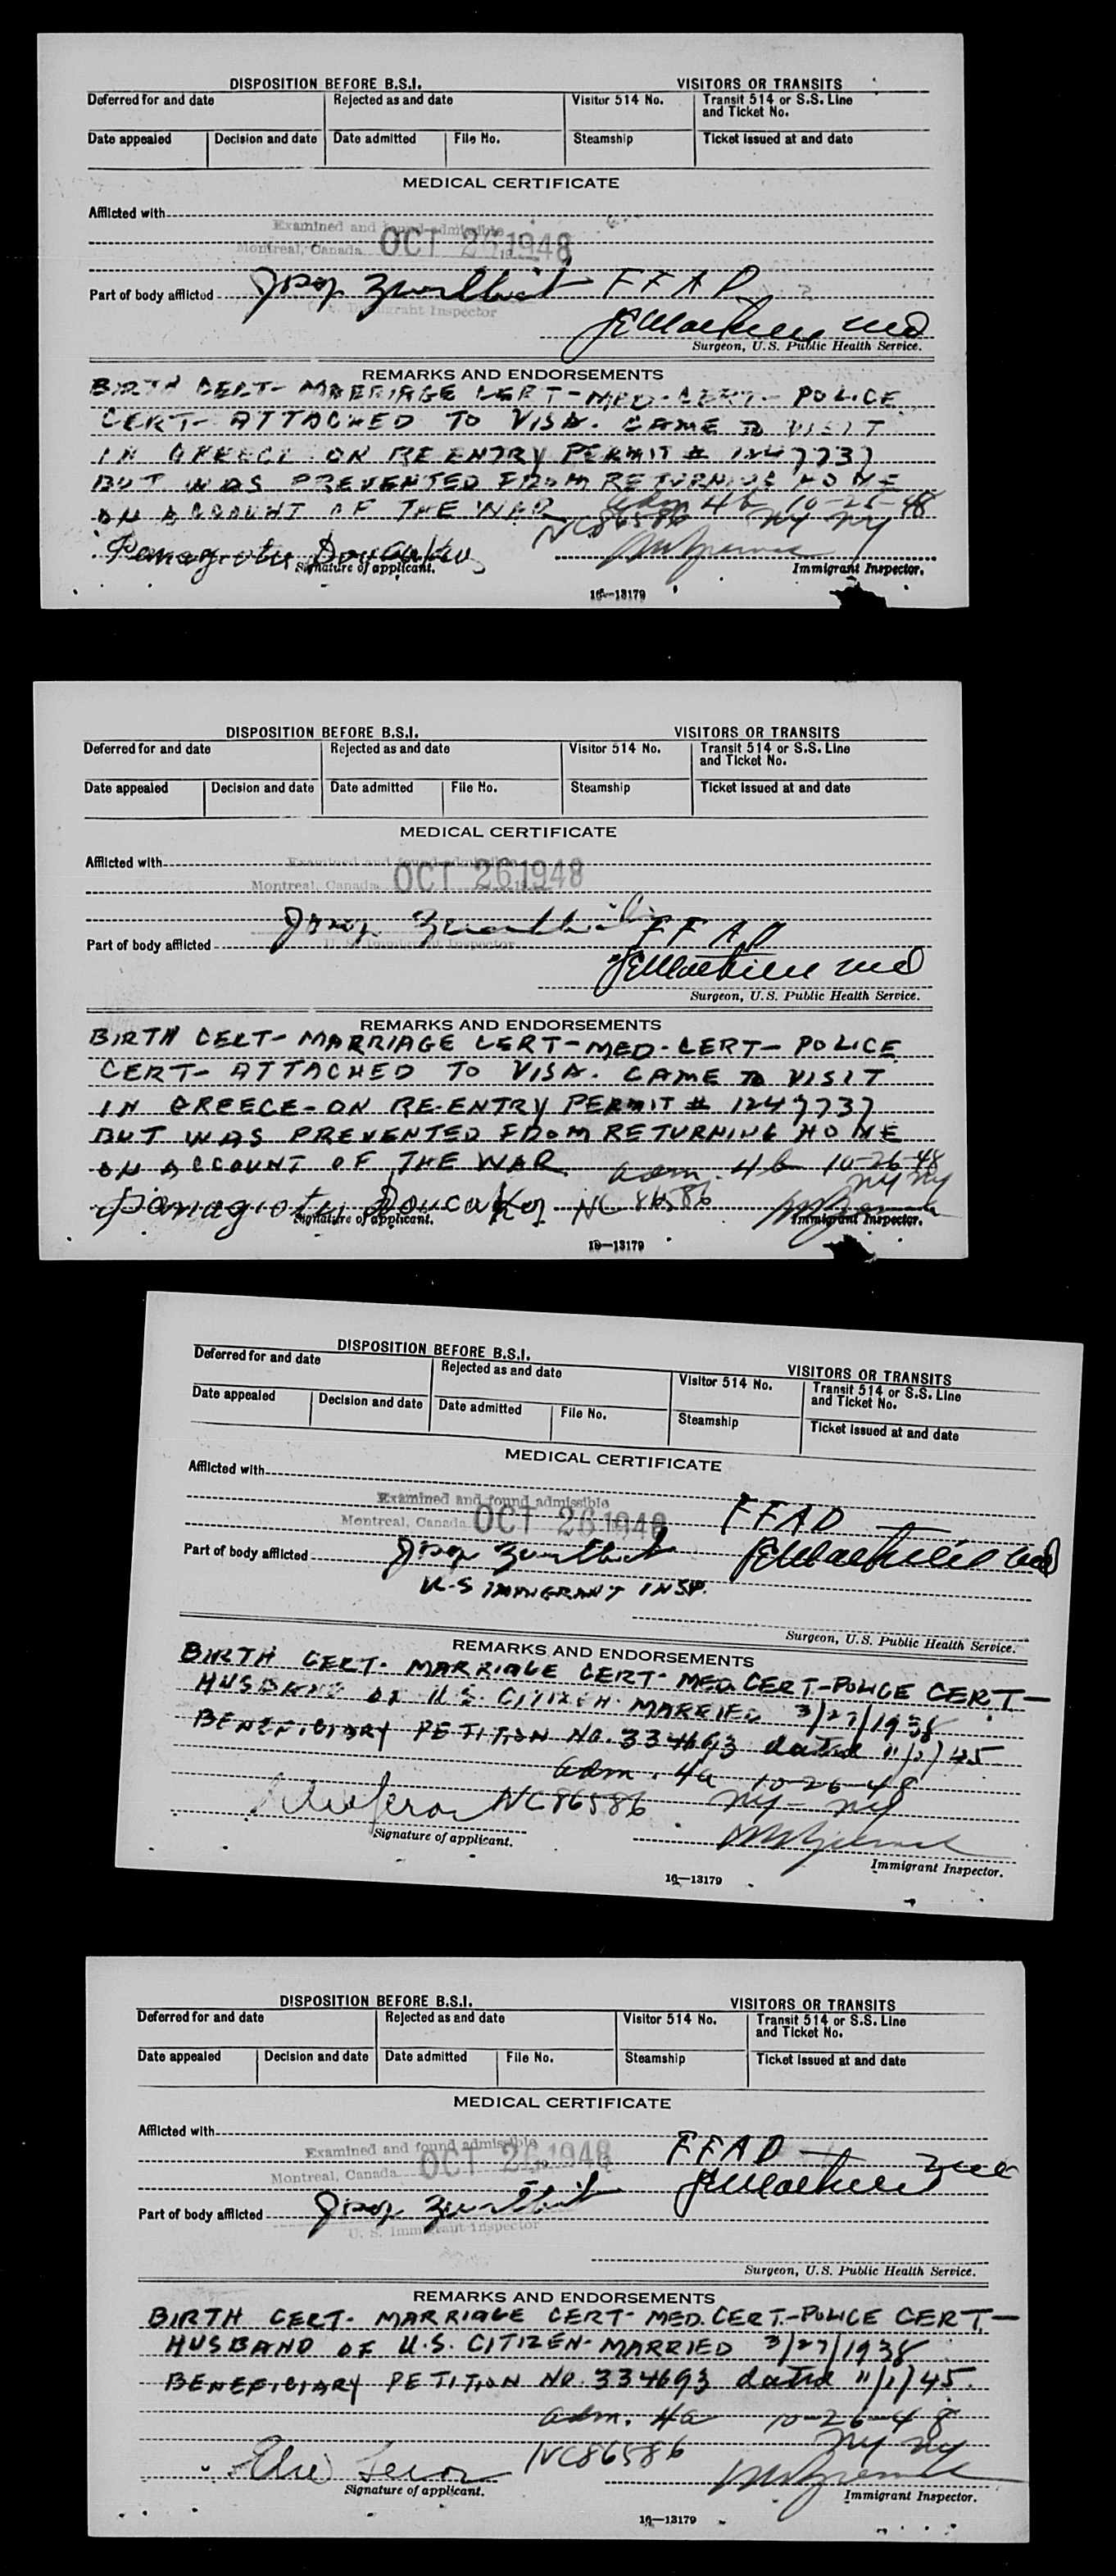 DISPOSITION BEFORE B.S.I. VISITORS OR TRANSITS
Deferred for and date Rejected as and date Visitor 514 No. Transit 514 or S.S. Line
and Ticket No.
Date appealed Decision and date Date admitted File No. Steamship Ticket issued at and date
MEDICAL CERTIFICATE
Afflicted with
Examined and found admissible
Montreal, Canada OCT 26 1948
Part of body afflicted FFAD
U. S. Immigrant Inspector
Surgeon, U.S. Public Health Service.
REMARKS AND ENDORSEMENTS
BIRTH CERT- MARRIAGE CERT-MED-CERT- POLICE
CERT- ATTACHED TO VISA. CAME TO VISIT
IN GREECE ON RE ENTRY PERMIT # 1247737
BUT WAS PREVENTED FROM RETURNING HOME
ON ACCOUNT OF THE WAR adm 4b 10-26-48
NC86586 NY NY
Signature of applicant. Immigrant Inspector.
16—13179
DISPOSITION BEFORE B.S.I. VISITORS OR TRANSITS
Deferred for and date Rejected as and date Visitor 514 No. Transit 514 or S.S. Line
and Ticket No.
Date appealed Decision and date Date admitted File No. Steamship Ticket issued at and date
MEDICAL CERTIFICATE
Afflicted with
Examined and found admissible
Montreal, Canada OCT 26 1948
Part of body afflicted FFAD
U. S. Immigrant Inspector
Surgeon, U.S. Public Health Service.
REMARKS AND ENDORSEMENTS
BIRTH CERT- MARRIAGE CERT-MED-CERT- POLICE
CERT- ATTACHED TO VISA. CAME TO VISIT
IN GREECE-ON RE-ENTRY PERMIT # 1247737
BUT WAS PREVENTED FROM RETURNING HOME
ON ACCOUNT OF THE WAR adm. 4b 10-26-48
NY NY
NC 86586
Signature of applicant. Immigrant Inspector.
16—13179
DISPOSITION BEFORE B.S.I. VISITORS OR TRANSITS
Deferred for and date Rejected as and date Visitor 514 No. Transit 514 or S.S. Line
and Ticket No.
Date appealed Decision and date Date admitted File No. Steamship Ticket issued at and date
MEDICAL CERTIFICATE
Afflicted with
Examined and found admissible FFAD
Montreal, Canada OCT 26 1948
Part of body afflicted
U-S IMMIGRANT INSP.
Surgeon, U.S. Public Health Service.
REMARKS AND ENDORSEMENTS
BIRTH CERT- MARRIAGE CERT- MED.CERT-POLICE CERT-
HUSBAND OF U.S. CITIZEN- MARRIED 3/27/1938
BENEFICIARY PETITION NO. 334693 dated 11/1/45
adm. 4a 10-26-48
NC86586 NY- NY
Signature of applicant.
Immigrant Inspector.
16—13179
DISPOSITION BEFORE B.S.I. VISITORS OR TRANSITS
Deferred for and date Rejected as and date Visitor 514 No. Transit 514 or S.S. Line
and Ticket No.
Date appealed Decision and date Date admitted File No. Steamship Ticket issued at and date
MEDICAL CERTIFICATE
Afflicted with
Examined and found admissible FFAD
Montreal, Canada OCT 26 1948
Part of body afflicted
U. S. Immigrant Inspector
Surgeon, U.S. Public Health Service.
REMARKS AND ENDORSEMENTS
BIRTH CERT- MARRIAGE CERT- MED.CERT.-POLICE CERT.-
HUSBAND OF U.S. CITIZEN- MARRIED 3/27/1938
BENEFICIARY PETITION NO. 334693 dated 11/1/45.
adm. 4a 10-26-48
NC86586 NY NY
Signature of applicant. Immigrant Inspector.
16—13179